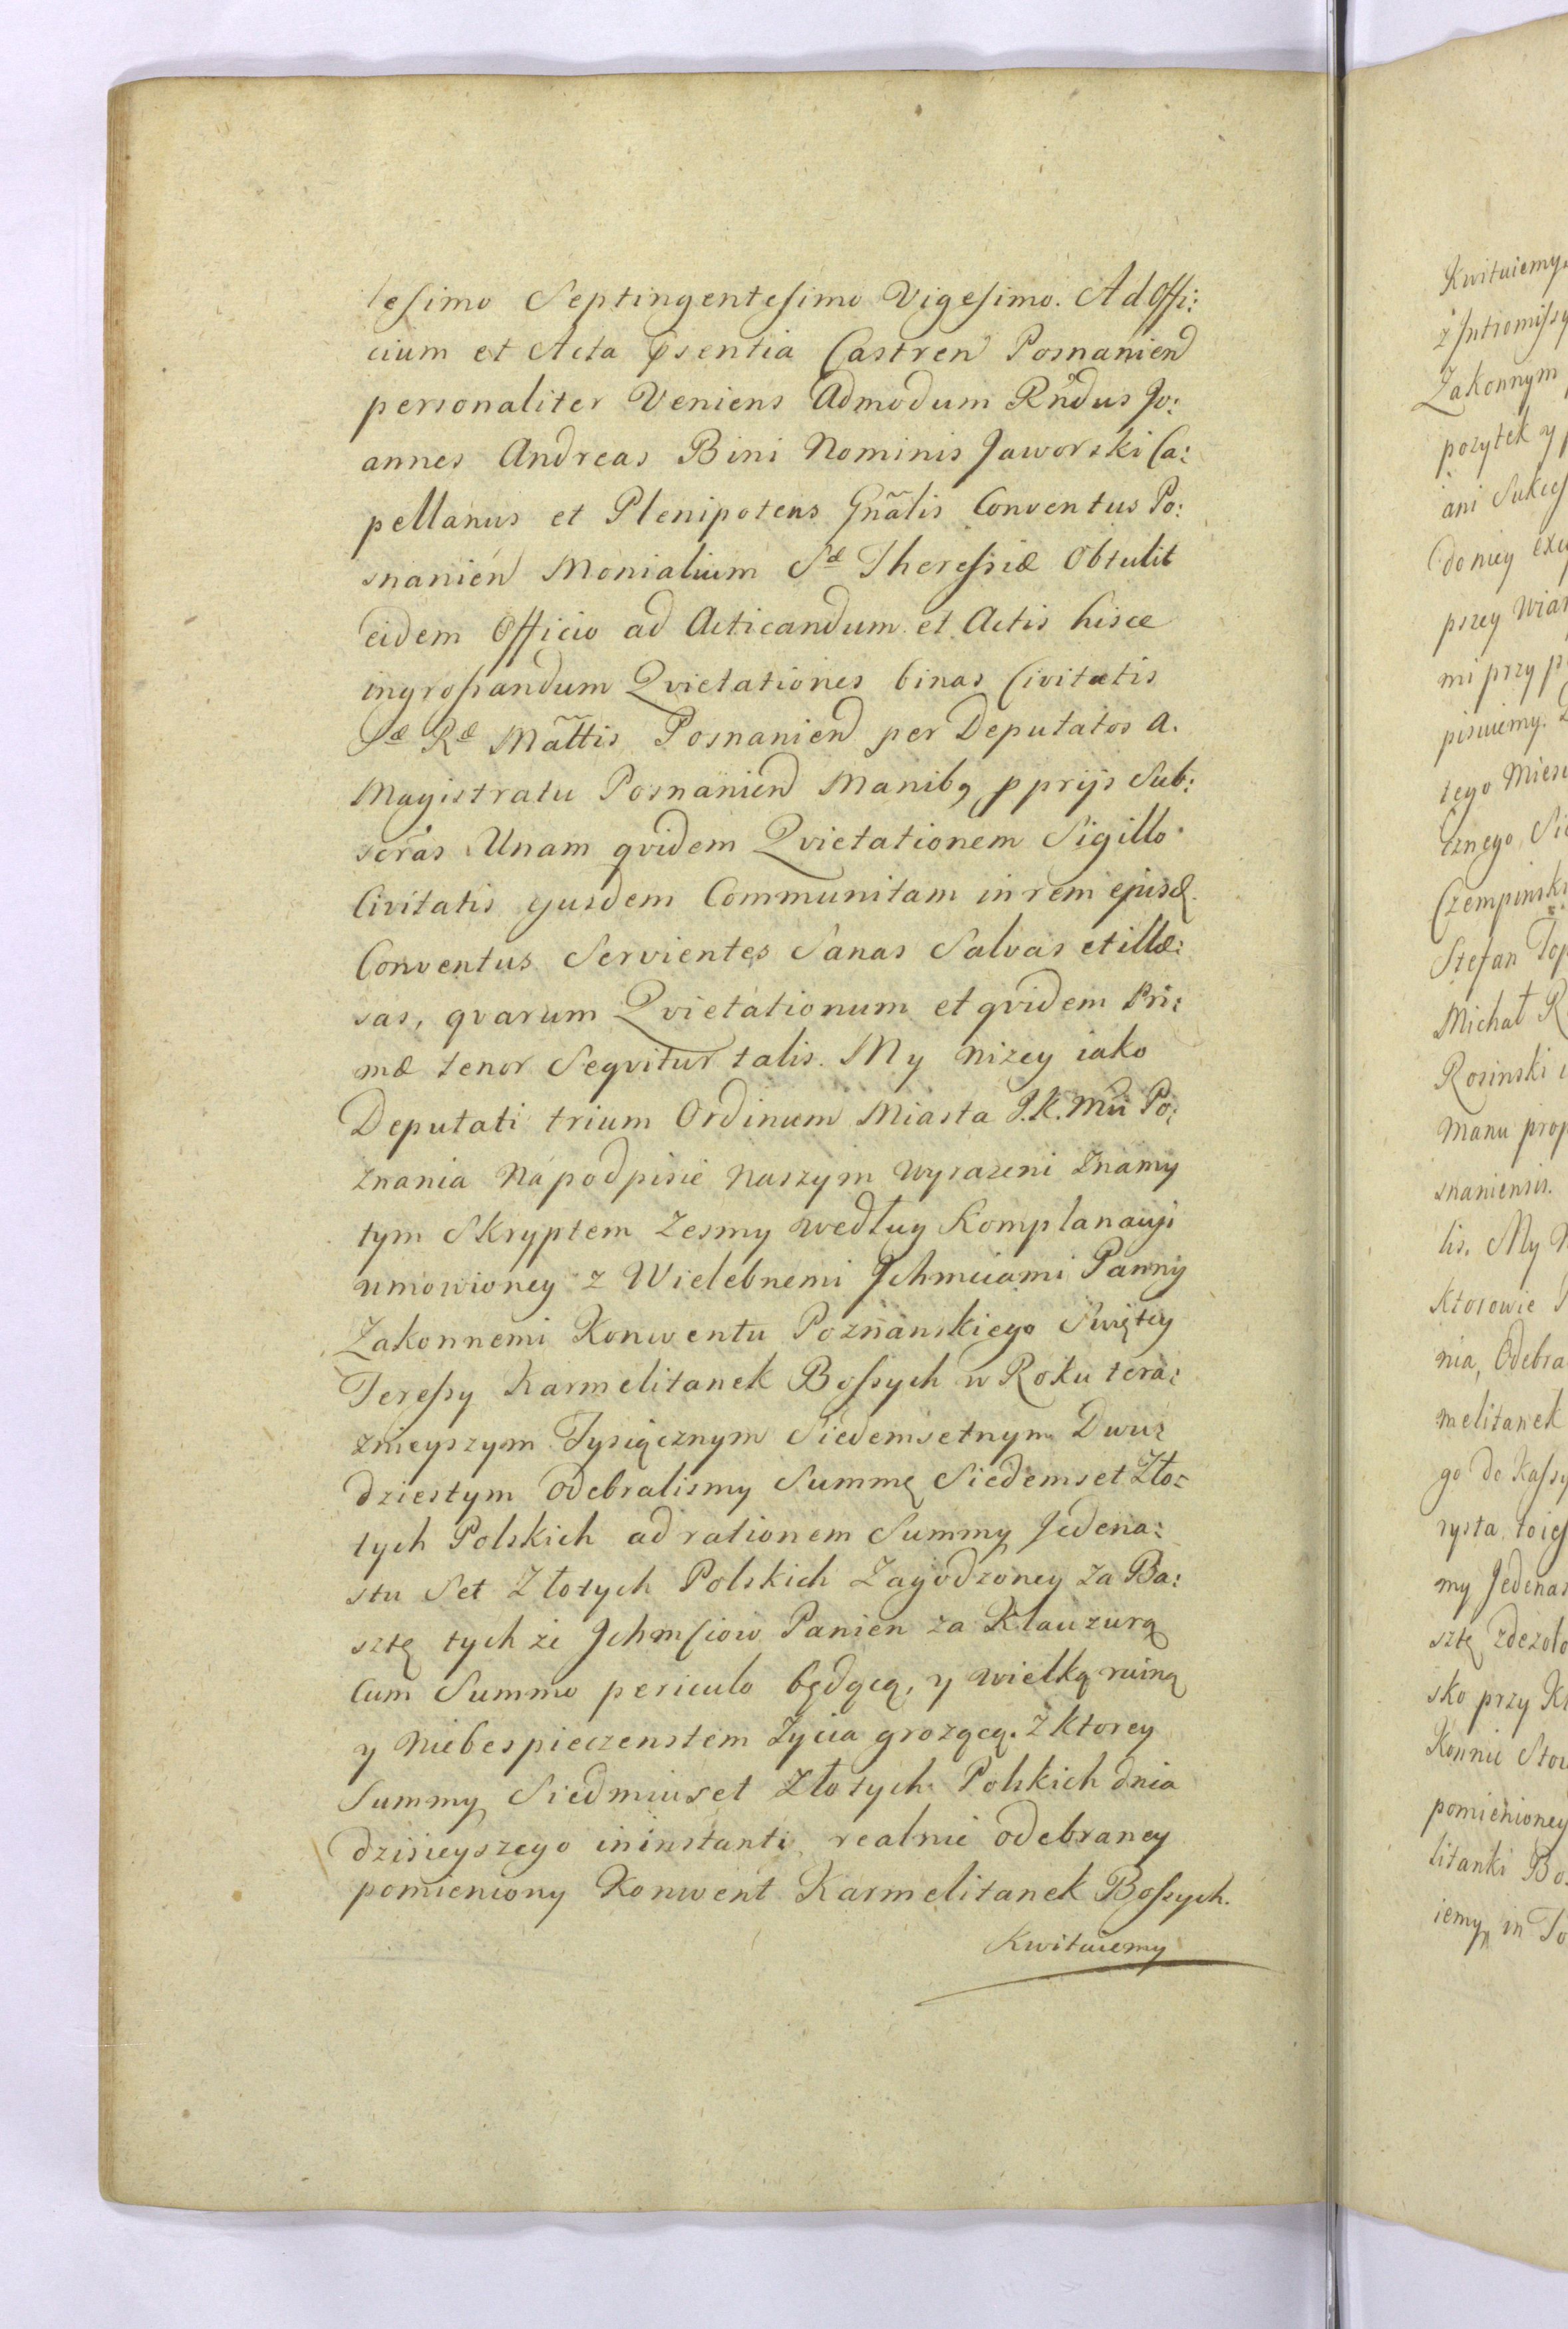 lesimo Septingentesimo Vigesimo. Ad Offi:
cium et Acta psentia Castren Posnanien
personaliter Veniens Admodum Rndus Jo:
annes Andreas Bini Nominis Jaworski Ca:
pellanus et Plenipotens Gñalis Conventus Po:
snanien Monialium Sæ Theressiæ Obtulit
eidem Officio ad Acticandum et Actis hisce
ingrossandum Qvietationes binas Civitatis
Sæ Ræ Mãttis Posnanien per Deputatos a.
Magistratu Posnanien Manibq pprijs Sub:
scras Unam qvidem Qvietationem Sigillo
Civitatis ejusdem Communitam in rem ejusd.
Conventus Servientes Sanas Salvas et illæ:
sas, qvarum Qvietationum et qvidem Pri:
mæ tenor Seqvitur talis. My nizey iako
Deputati trium Ordinum Miasta J.K.Mci Po:
znania Na podpisie Naszym wyrazeni Znamy
tym Skryptem Zesmy według Komplanacyi
umowioney z Wielebnemi Jchmciami Panny
Zakonnemi Konwentu Poznanskiego Swiętey
Teressy Karmelitanek Bossych w Roku tera:
znieyszym Tysiącznym Siedemsetnym Dwu:
dziestym odebralismy Summę Siedemset Zło:
tych Polskich ad rationem Summy Jedena:
stu Set Złotych Polskich Zagodzoney za Ba:
sztę tych ze Jchmsciow Panien za Klauzurą
Cum Summo periculo będącą, y wielką ruiną
y Niebespieczenstem Zycia grozącą. z ktorey
Summy Siedmiuset Złotych Polskich dnia
dzisieyszego in instanti realnie odebraney
pomieniony Konwent Karmelitanek Bossych.
Kwituiemy
Kwituiemy
z Intromissy
Zakonnym
pozytek y
ani Sukces
do niey
przey
mi przy
pisuiemy.
tego
cznego
Czempinski
Stefan
Michał
Rosinski
Manu
snaniensis.
lis. My
Ktorowie
nia, Odebra
melitanek
go do Kassy
rysta
my Jedenas
sztę
sko przy
Konnie
pomienioney
litanki
iemy in